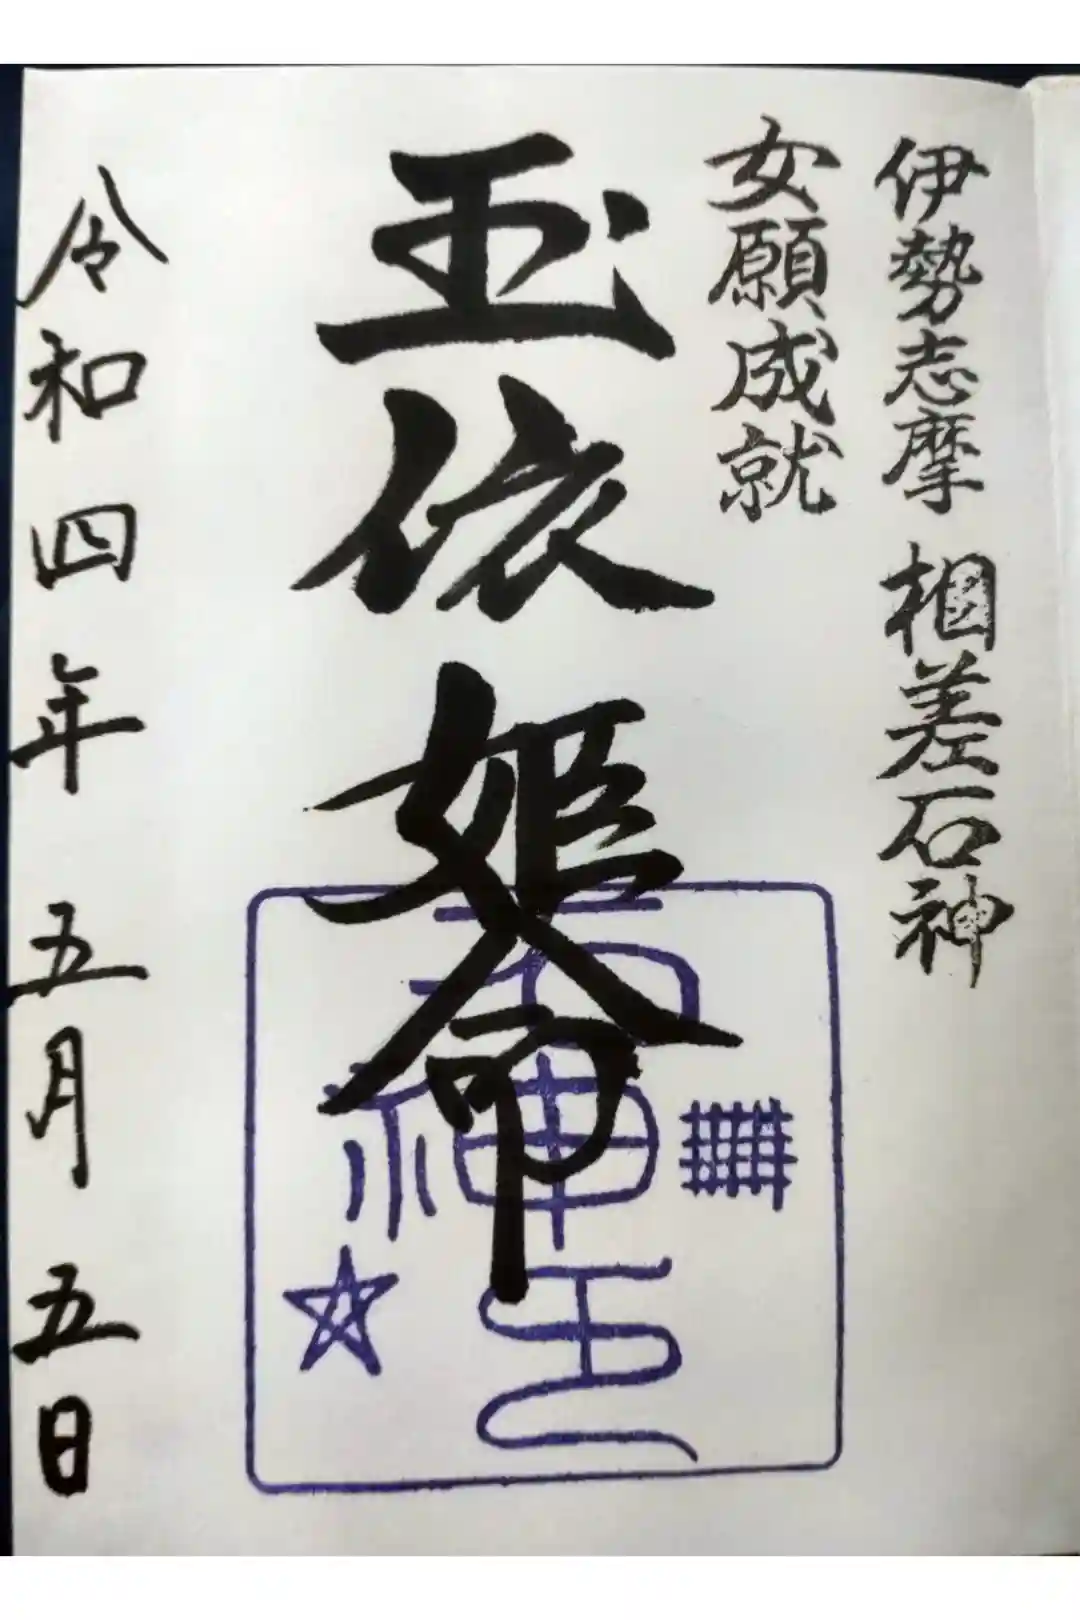 伊勢志摩 相差石神
女願成就
玉依姫命
石神
令和四年 五月 五日